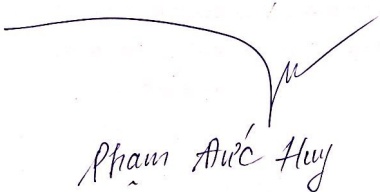 Phạm Đức Huy